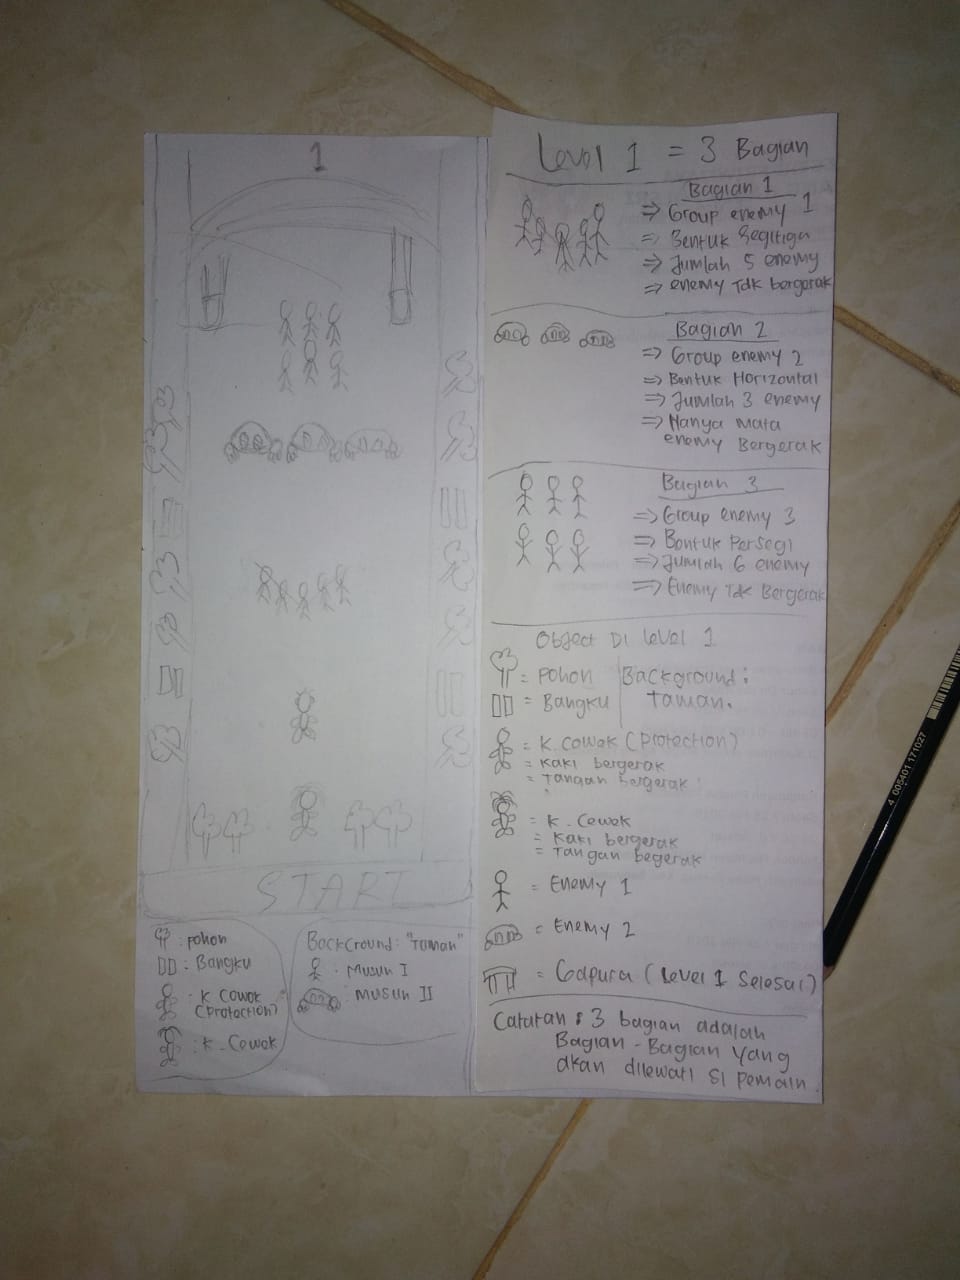 1
START
: pohon
: Bangku
: K Cowok
(Protection)
: K_Cewok
Background: "Taman"
: Musuh I
: Musuh II
Level 1 = 3 Bagian
Bagian 1
=> Group enemy 1
=> Bentuk Segitiga
=> Jumlah 5 enemy
=> enemy Tdk bergerak
Bagian 2
=> Group enemy 2
=> Bentuk Horizontal
=> Jumlah 3 enemy
=> Hanya Mata
enemy Bergerak
Bagian 3
=> Group enemy 3
=> Bentuk Persegi
=> Jumlah 6 enemy
=> Enemy Tdk Bergerak
Object Di Level 1
= Pohon
= Bangku
Background :
Taman.
= K. Cowok (Protection)
= Kaki bergerak
= Tangan bergerak
= K_Cewok
= Kaki bergerak
= Tangan begerak
= Enemy 1
= Enemy 2
= Gapura (Level 1 Selesai)
Catatan : 3 bagian adalah
Bagian - Bagian Yang
akan dilewati si Pemain.
4 005401 171027